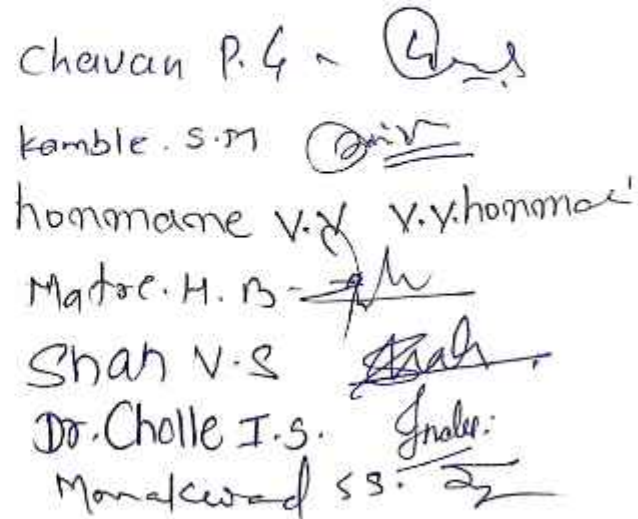 Chavan P. G -
Kamble. S. M
honmane V. Y V. Y. honmae
Matre. H. B -
Shah V. S Shah
Dr. Cholle I. S.
Manakwad S S.